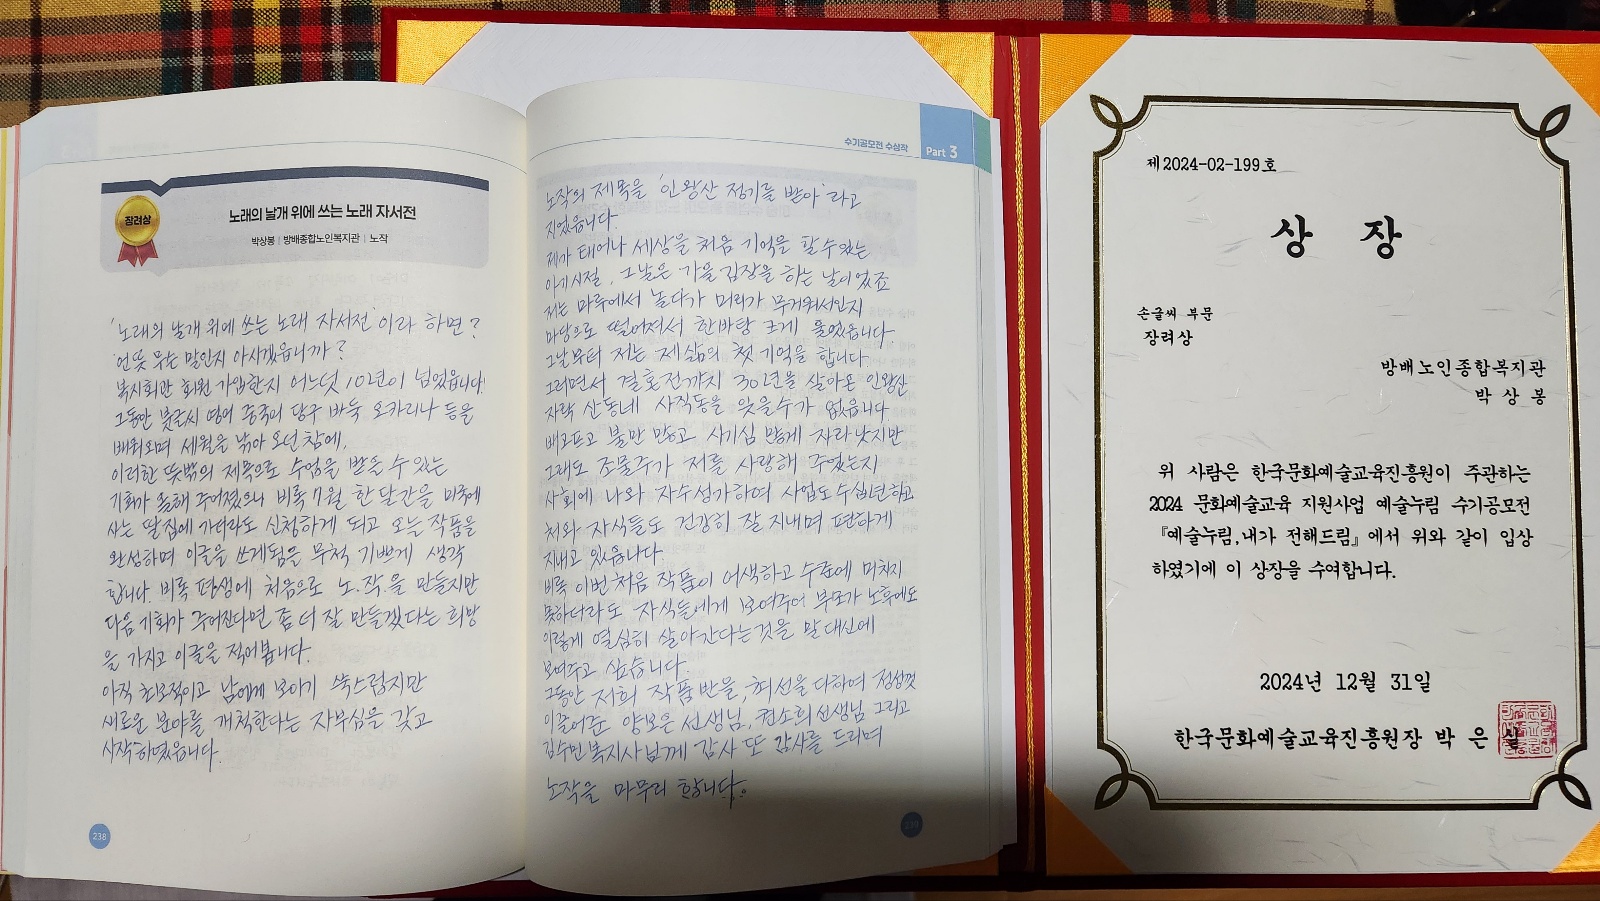 장려상
노래의 날개 위에 쓰는 노래 자서전
박상봉 | 방배종합노인복지관 | 노작
'노래의 날개 위에 쓰는 노래 자서전'이라 하면?
언뜻 무슨 말인지 아시겠읍니까?
복지회관 회원 가입한지 어느덧 10년이 넘었읍니다.
그동안 붓글씨 영어 중국어 당구 바둑 오카리나 등을
배워오며 세월을 낚아 오던 참에,
이러한 뜻밖의 제목으로 수업을 받을 수 있는
기회가 올해 주어졌으니 비록 7월 한 달간을 미국에
사는 딸집에 가더라도 신청하게 되고 오늘 작품을
완성하며 이글을 쓰게됨을 무척 기쁘게 생각
합니다. 비록 평생에 처음으로 노.작.을 만들지만
다음 기회가 주어진다면 좀 더 잘 만들겠다는 희망
을 가지고 이글을 적어봅니다.
아직 초보적이고 남에게 보이기 쑥스럽지만
새로운 분야를 개척한다는 자부심을 갖고
시작하였읍니다.
238
수기공모전 수상작
Part 3
노작의 제목을 '인왕산 정기를 받아'라고
지었읍니다.
제가 태어나 세상을 처음 기억을 할 수 있는
아기시절, 그날은 가을 김장을 하는 날이었죠
저는 마루에서 놀다가 머리가 무거워서인지
마당으로 떨어져서 한바탕 크게 울었읍니다.
그날부터 저는 제 삶의 첫 기억을 합니다.
그러면서 결혼전까지 30년을 살아온 인왕산
자락 산동네 사직동을 잊을수가 없읍니다
배고프고 불만 많고 시기심 많게 자라났지만
그래도 조물주가 저를 사랑해 주었는지
사회에 나와 자수성가하며 사업도 수십년하고
처와 자식들도 건강히 잘 지내며 편하게
지내고 있읍니다.
비록 이번 처음 작품이 어색하고 수준에 미치지
못하더라도 자식들에게 보여주어 부모가 노후에도
이렇게 열심히 살아간다는것을 말대신에
보여주고 싶습니다.
그동안 저희 작품반을, 최선을 다하여 정성껏
이끌어준 양보은 선생님, 권소희 선생님 그리고
김수민 복지사님께 감사 또 감사를 드리며
노작을 마무리 합니다.
239
제 2024-02-199 호
상 장
손글씨 부문
장려상
방배노인종합복지관
박 상 봉
위 사람은 한국문화예술교육진흥원이 주관하는
2024 문화예술교육 지원사업 예술누림 수기공모전
『예술누림,내가 전해드림』에서 위와 같이 입상
하였기에 이 상장을 수여합니다.
2024년 12월 31일
한국문화예술교육진흥원장 박 은 실